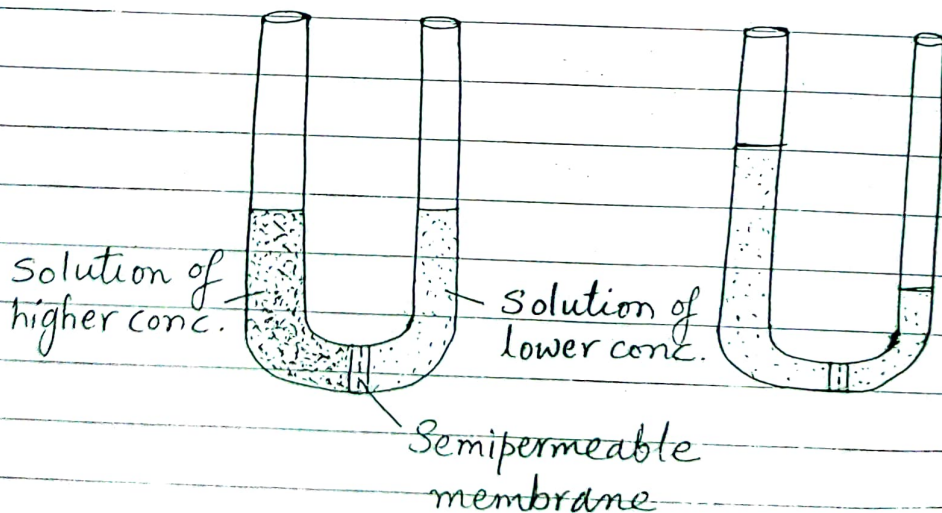 Solution of
higher conc.
Solution of
lower conc.
Semipermeable
membrane